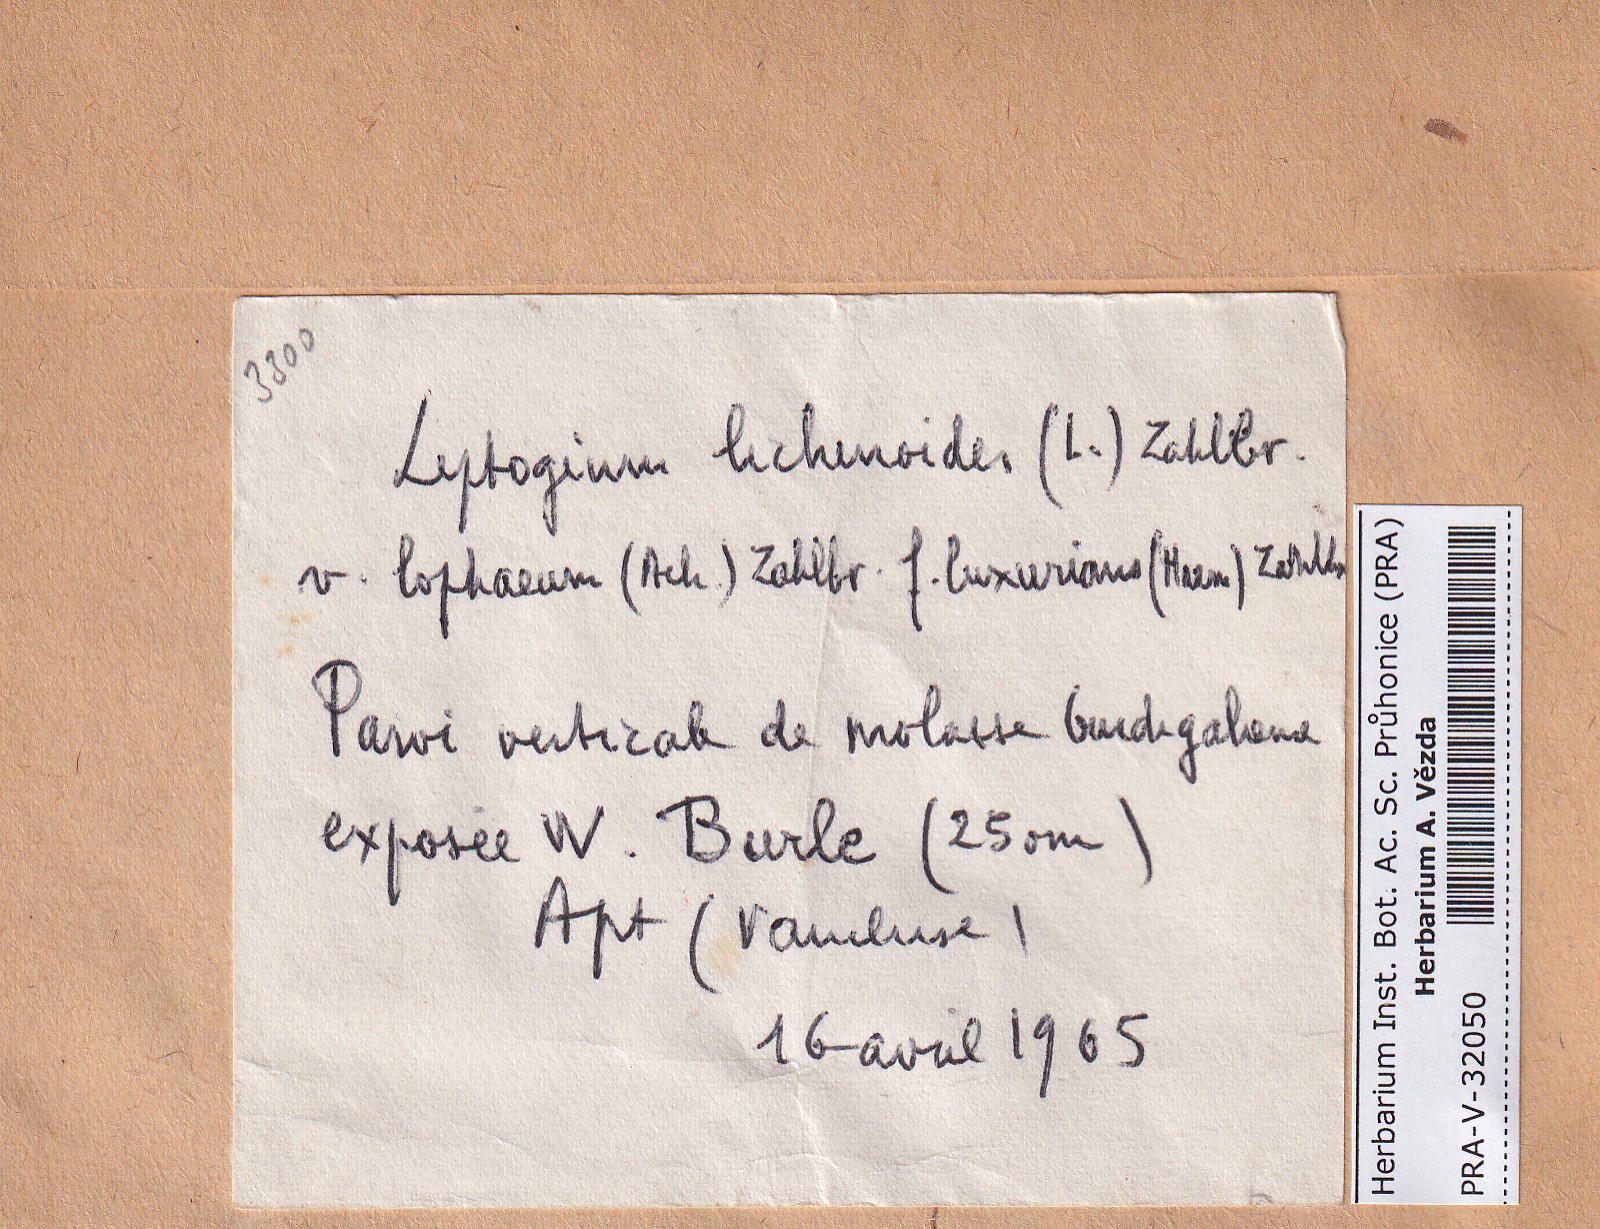 3300
Leptogium lichenoides (L.) Zahlbr.
v. lophaeum (Ach.) Zahlbr. f. luxurians (Harm) Zahlbr
Paroi verticale de molasse burdigalienne
exposée W. Burle (250m)
Apt (Vaucluse)
16 avril 1965
Herbarium Inst. Bot. Ac. Sc. Průhonice (PRA)
Herbarium A. Vězda
PRA-V-32050